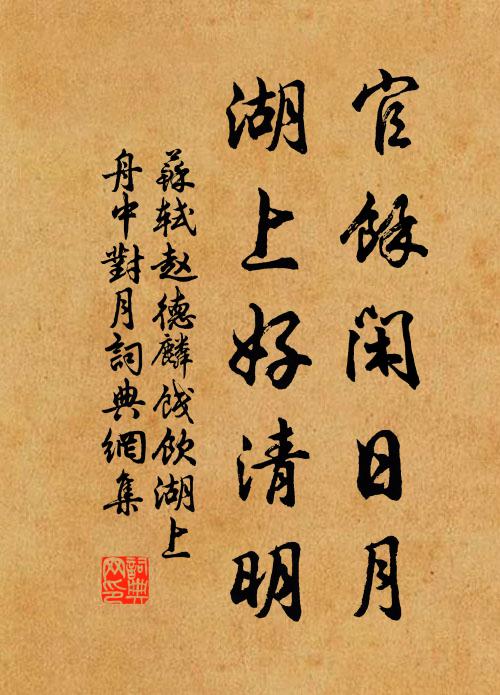 官餘閑日月
湖上好清明
蘇軾赵德麟餞飲湖上
舟中對月詞典網集
詞典
网印